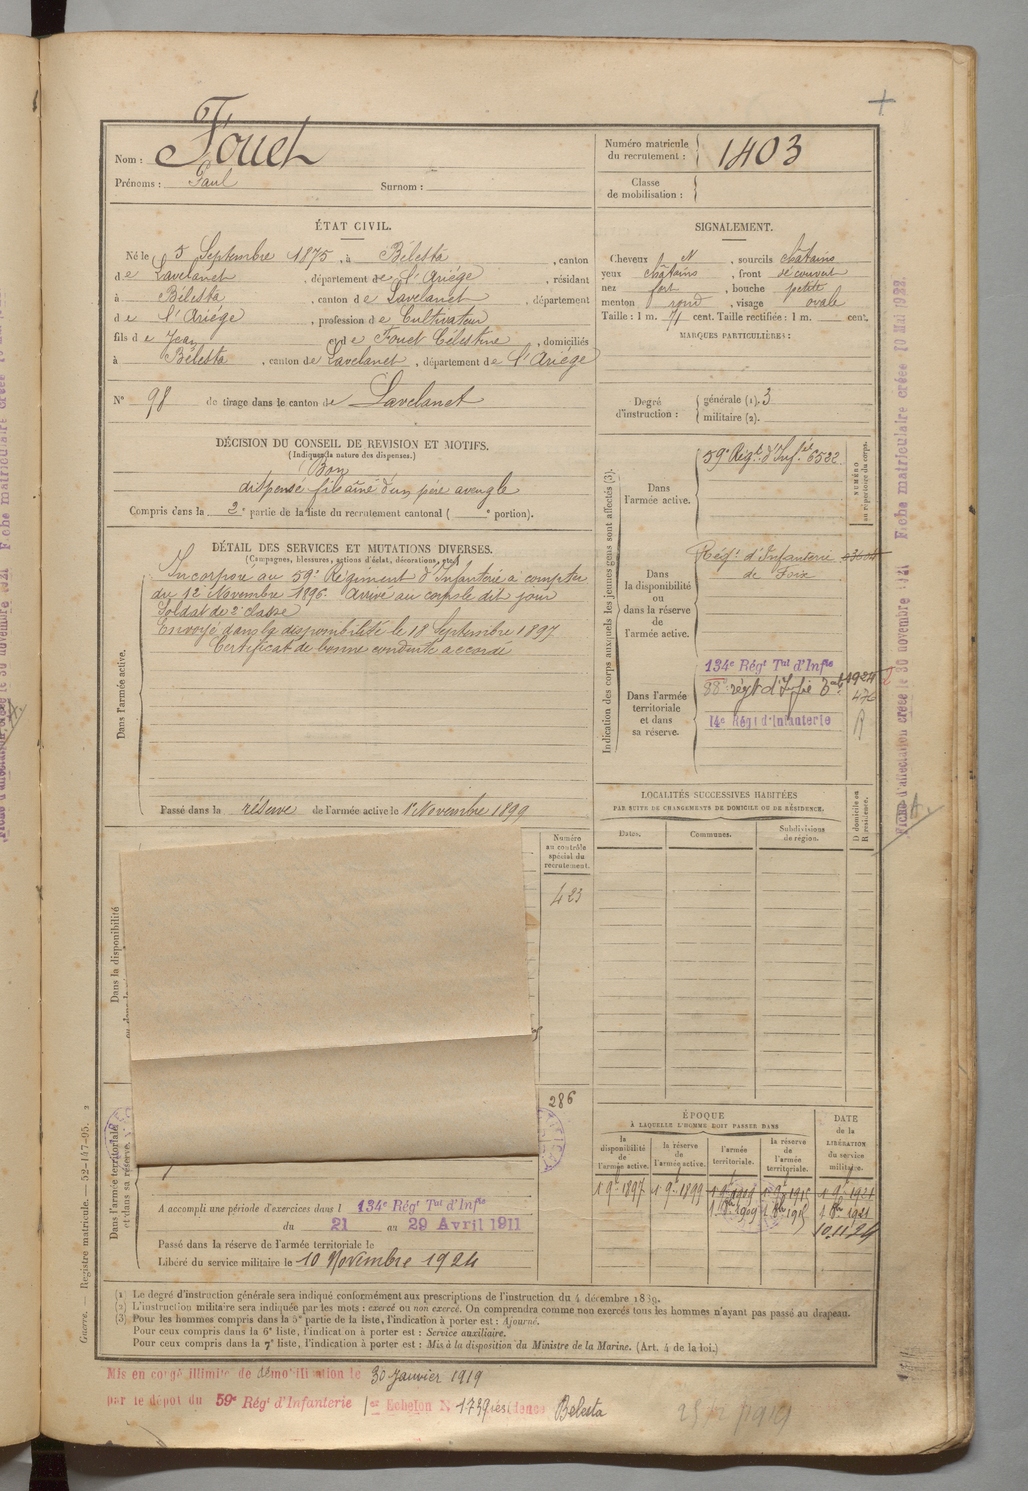 Nom : Fouet
Prénoms : Paul Surnom :
Numéro matricule du recrutement : 1403
Classe de mobilisation :
ÉTAT CIVIL.
Né le 5 Septembre 1875, à Bélesta, canton
de Lavelanet, département de l'Ariége, résidant
à Bélesta, canton de Lavelanet, département
de l'Ariége, profession de Cultivateur
fils de Jean et de Fouet Célestine, domiciliés
à Bélesta, canton de Lavelanet, département de l'Ariége
N° 98 de tirage dans le canton de Lavelanet
SIGNALEMENT.
Cheveux N, sourcils châtains
yeux châtains, front découvert
nez fort, bouche petite
menton rond, visage ovale
Taille : 1 m. 71 cent. Taille rectifiée : 1 m. cent.
MARQUES PARTICULIÈRES :
Degré d'instruction : générale (1). 3
militaire (2).
DÉCISION DU CONSEIL DE REVISION ET MOTIFS.
(Indiquer la nature des dispenses.)
Bon
dispensé fils aîné d'un père aveugle
Compris dans la 2e partie de la liste du recrutement cantonal ( e portion).
DÉTAIL DES SERVICES ET MUTATIONS DIVERSES.
(Campagnes, blessures, actions d'éclat, décorations, etc.)
Dans l'armée active.
Incorporé au 59e Régiment d'Infanterie à compter
du 12 Novembre 1896. Arrivé au corps le dit jour
Soldat de 2e classe
Envoyé dans la disponibilité le 18 Septembre 1897
Certificat de bonne conduite accordé
Passé dans la réserve de l'armée active le 1er Novembre 1899
Indication des corps auxquels les jeunes gens sont affectés (3).
NUMÉRO au répertoire du corps.
Dans l'armée active.
59e Régt d'Inf. 6532
Dans la disponibilité ou dans la réserve de l'armée active.
Régt d'Infanterie
de Foix
Dans l'armée territoriale et dans sa réserve.
134e Régt Tal d'Infie
88e régt d'Infie
14e Régt d'Infanterie
LOCALITÉS SUCCESSIVES HABITÉES
PAR SUITE DE CHANGEMENTS DE DOMICILE OU DE RÉSIDENCE.
Dates. Communes. Subdivisions de région. D domicile ou R résidence.
Numéro au contrôle spécial du recrutement.
423
Dans la disponibilité
286
Dans l'armée territoriale et dans sa réserve.
A accompli une période d'exercices dans l 134e Régt Tal d'Infie
du 21 au 29 Avril 1911
Passé dans la réserve de l'armée territoriale le
Libéré du service militaire le 10 Novembre 1924
ÉPOQUE
À LAQUELLE L'HOMME DOIT PASSER DANS
la disponibilité de l'armée active. la réserve de l'armée active. l'armée territoriale. la réserve de l'armée territoriale.
DATE de la LIBÉRATION du service militaire.
1 9e 1897 1 9e 1899
10.11.24
(1) Le degré d'instruction générale sera indiqué conformément aux prescriptions de l'instruction du 4 décembre 1889.
(2) L'instruction militaire sera indiquée par les mots : exercé ou non exercé. On comprendra comme non exercés tous les hommes n'ayant pas passé au drapeau.
(3) Pour les hommes compris dans la 5e partie de la liste, l'indication à porter est : Ajourné.
Pour ceux compris dans la 6e liste, l'indication à porter est : Service auxiliaire.
Pour ceux compris dans la 7e liste, l'indication à porter est : Mis à la disposition du Ministre de la Marine. (Art. 4 de la loi.)
Mis en congé illimité de démobilisation le 30 Janvier 1919
par le dépôt du 59e Régt d'Infanterie 1er Echelon N° 1739 résidence Belesta
Guerre. — Registre matricule. — 52-147-95.
Fiche d'affectation créée le 30 novembre 1921 Fiche matriculaire créée 10 Mai 1922.